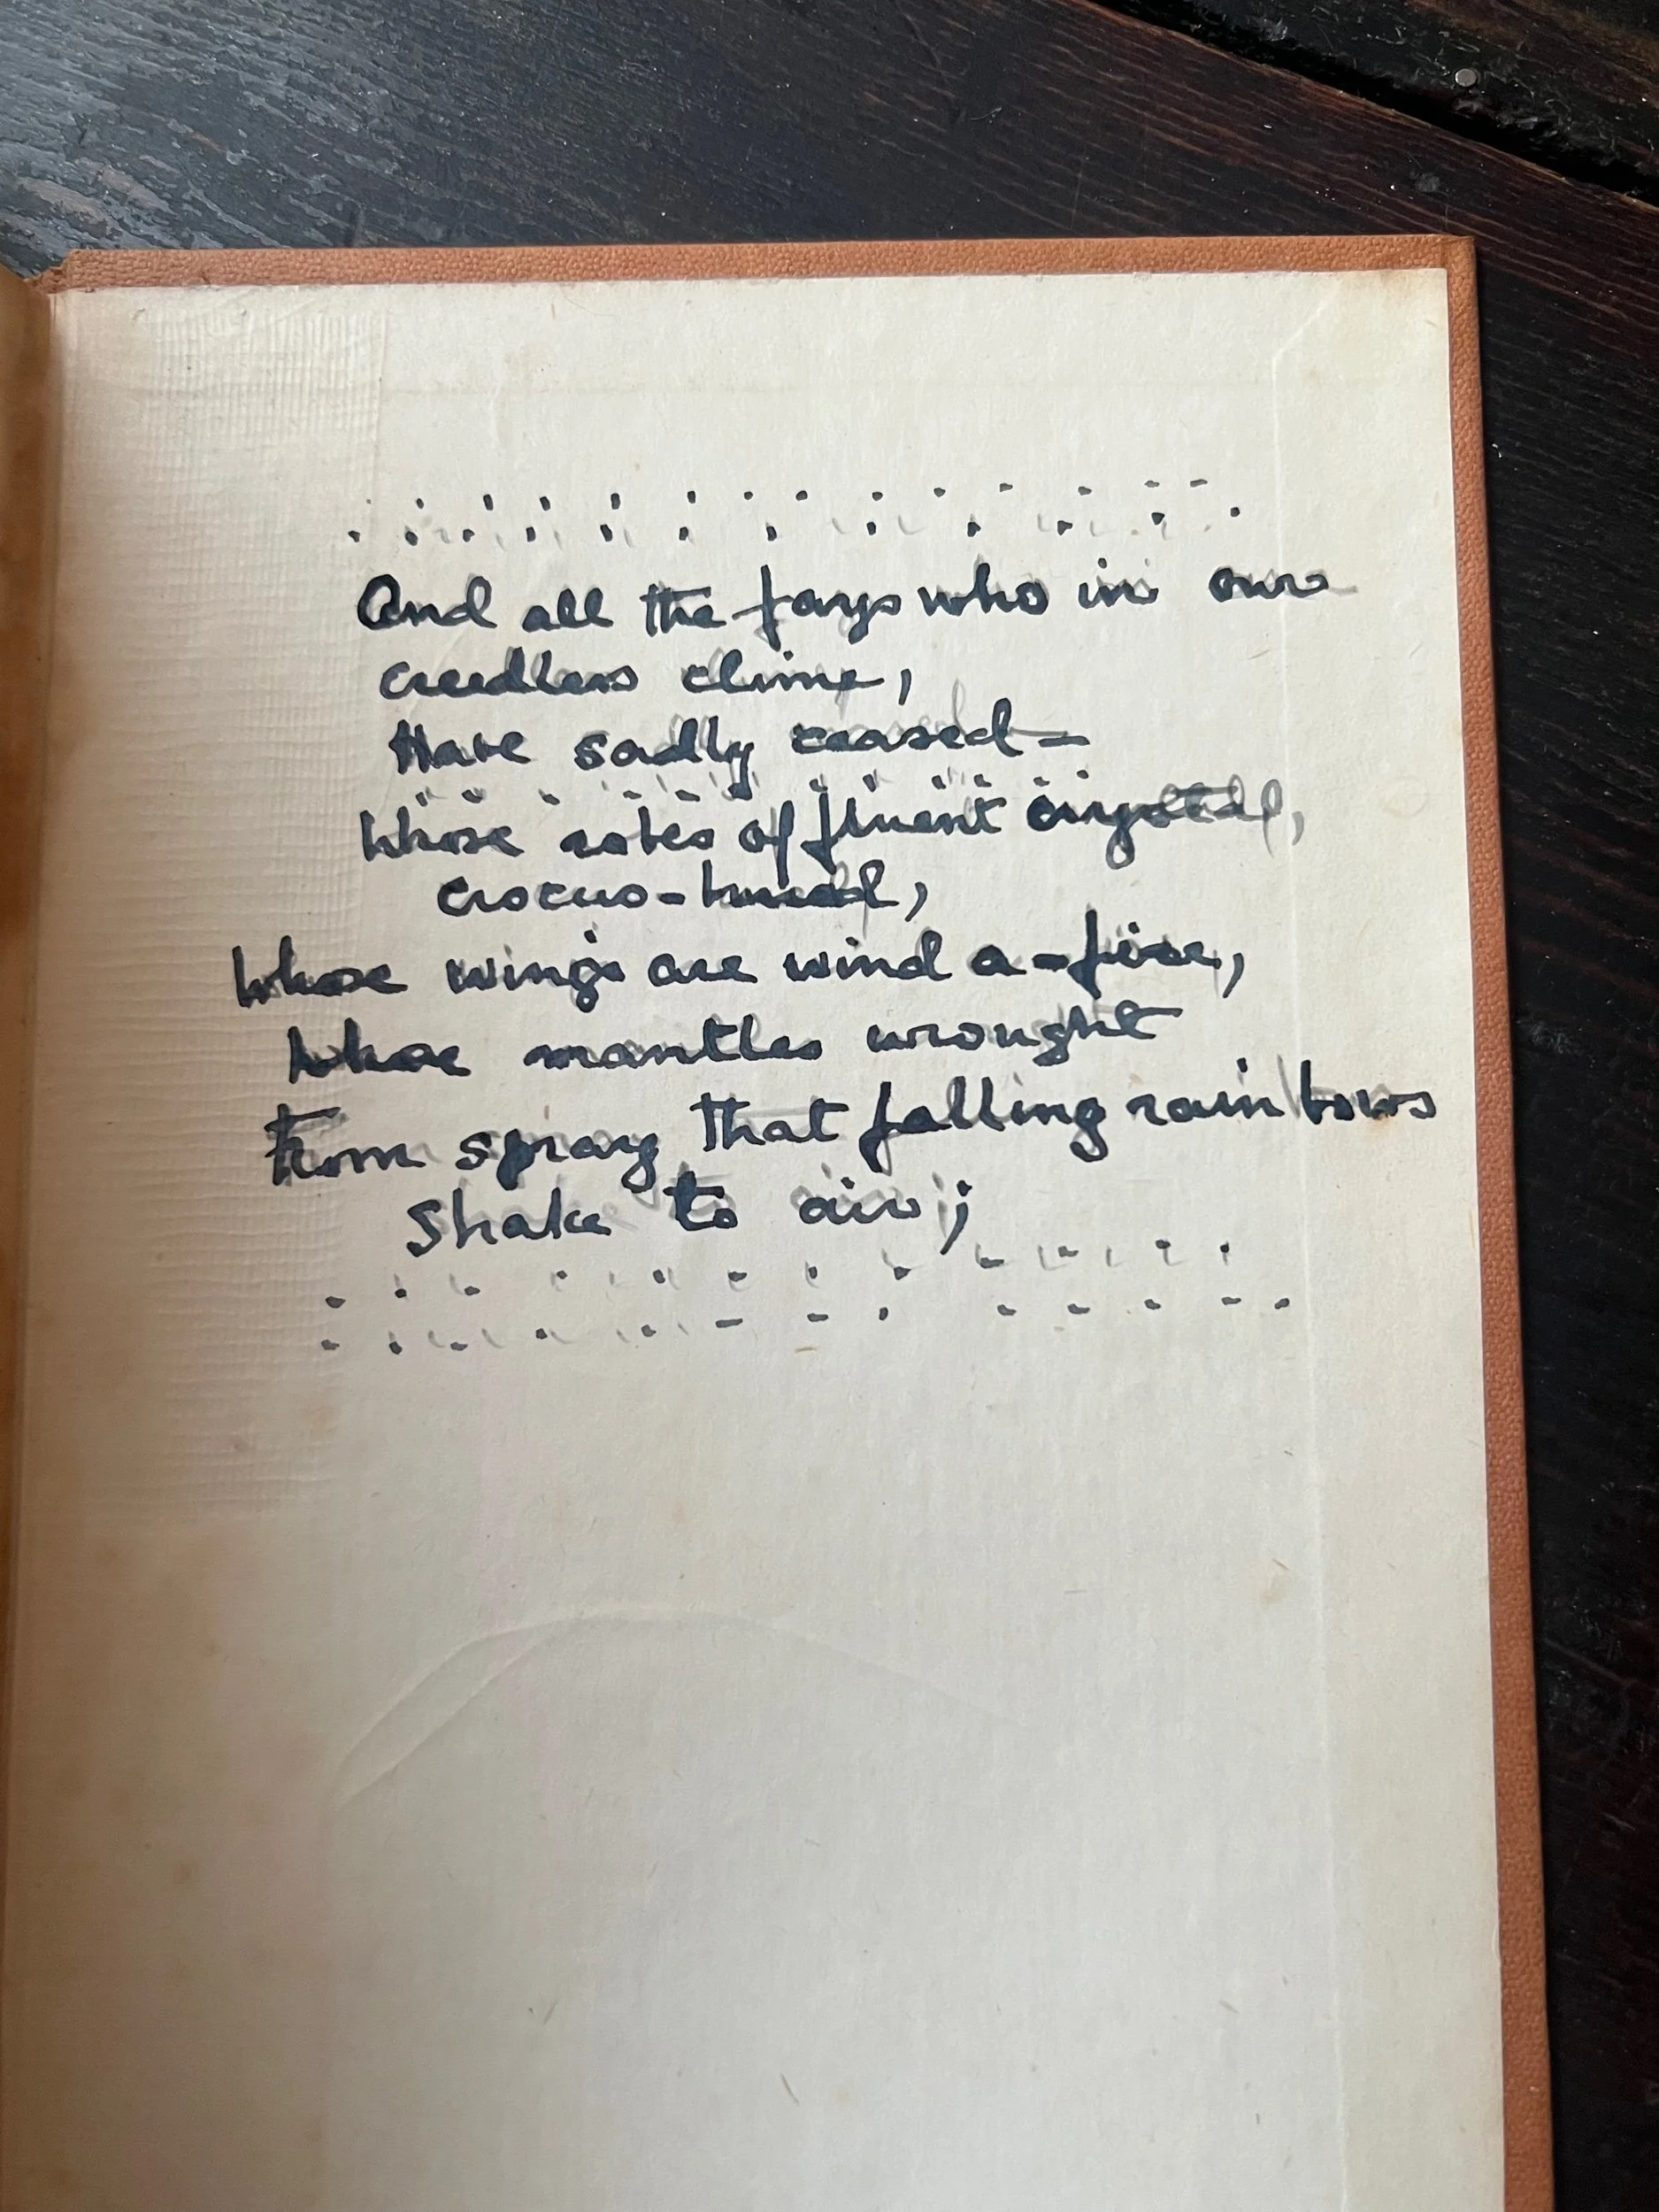 . . . . . . . . . . . . . .
. . . . . . . . . . . .
And all the fays who in our
creedless clime,
Have sadly ceased –
. . . . . . . . . . . .
Whose robes of fluent crystal,
crocus-hued,
Whose wings are wind a-fire,
whose mantles wrought
From spray that falling rainbows
shake to air;
. . . . . . . . . . . .
. . . . . . . . . . . . .